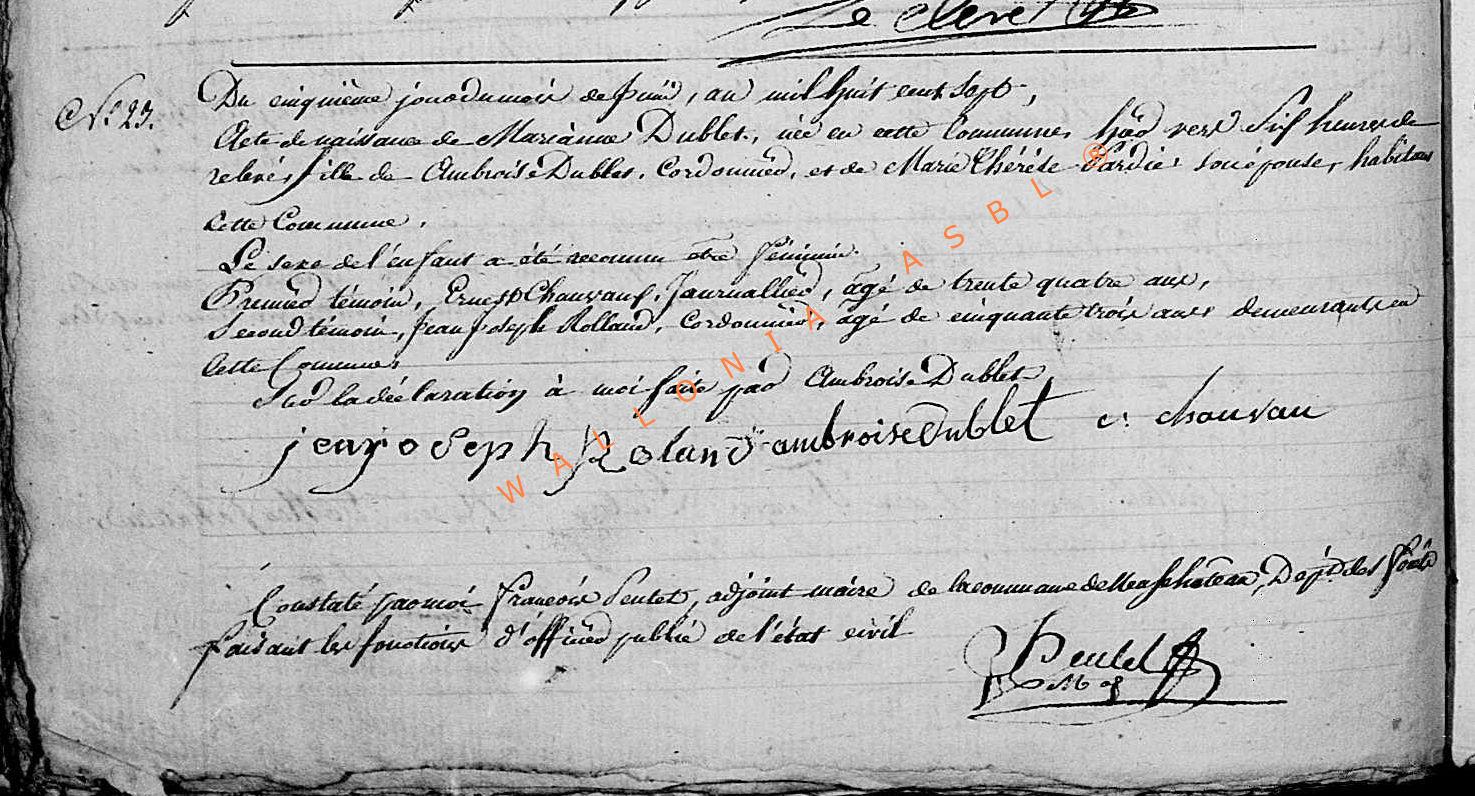 Le clerc
Nº 23.
Du cinquième jour du mois de Juin, an mil huit cent sept,
Acte de naissance de Marianne Dublet, née en cette Commune, hier vers Six heures de
relevée, fille de Ambroise Dublet, Cordonnier, et de Marie Thérèse son épouse, habitans
cette Commune.
Le sexe de l'enfant a été reconnu être féminin.
Premier témoin, Ernest Chauvaux, Journallier, âgé de trente quatre ans,
Second témoin, Jean Joseph Rolland, Cordonnier, âgé de cinquante trois ans demeurants en
cette Commune,
Sur la déclaration à moi faite par Ambroise Dublet
jean joseph Roland ambroise dublet e: chauvau
WALLONIA ASBL ®
Constaté par moi François Pentet, adjoint maire de la commune de Neufchateau, Dépt. des Forêts
faisant les fonctions d'officier public de l'état civil
Pentel